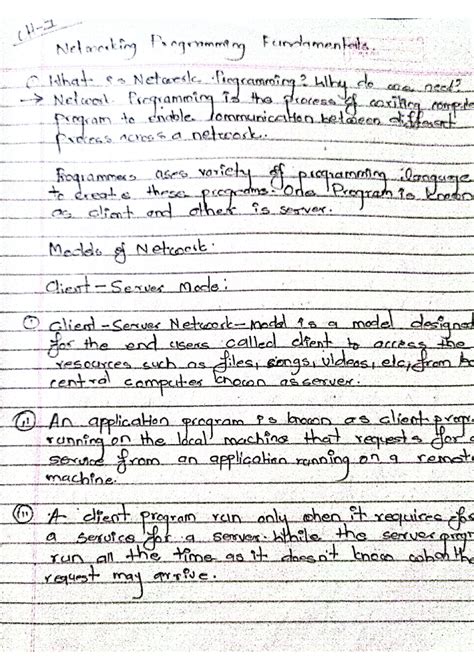 CH-1
Networking Programming Fundamentals.
What is Network Programming? Why do we need?
→ Network Programming is the process of writing compute
program to enable communication between different
process across a network.
Programmers uses variety of programming language
to create these programs. One Program is known
as client and other is server.
Models of Network:
Client-Server Mode:
(i) Client-Server Network-Model is a model designed
for the end users called client to access the
resources such as files, songs, videos, etc, from
central computer known as server.
(ii) An application program is known as client-progr
running on the local machine that requests for
service from an application running on a remote
machine.
(iii) A client program run only when it requires for
a service for a server. While the server progr
run all the time as it doesn't know when the
request may arrive.